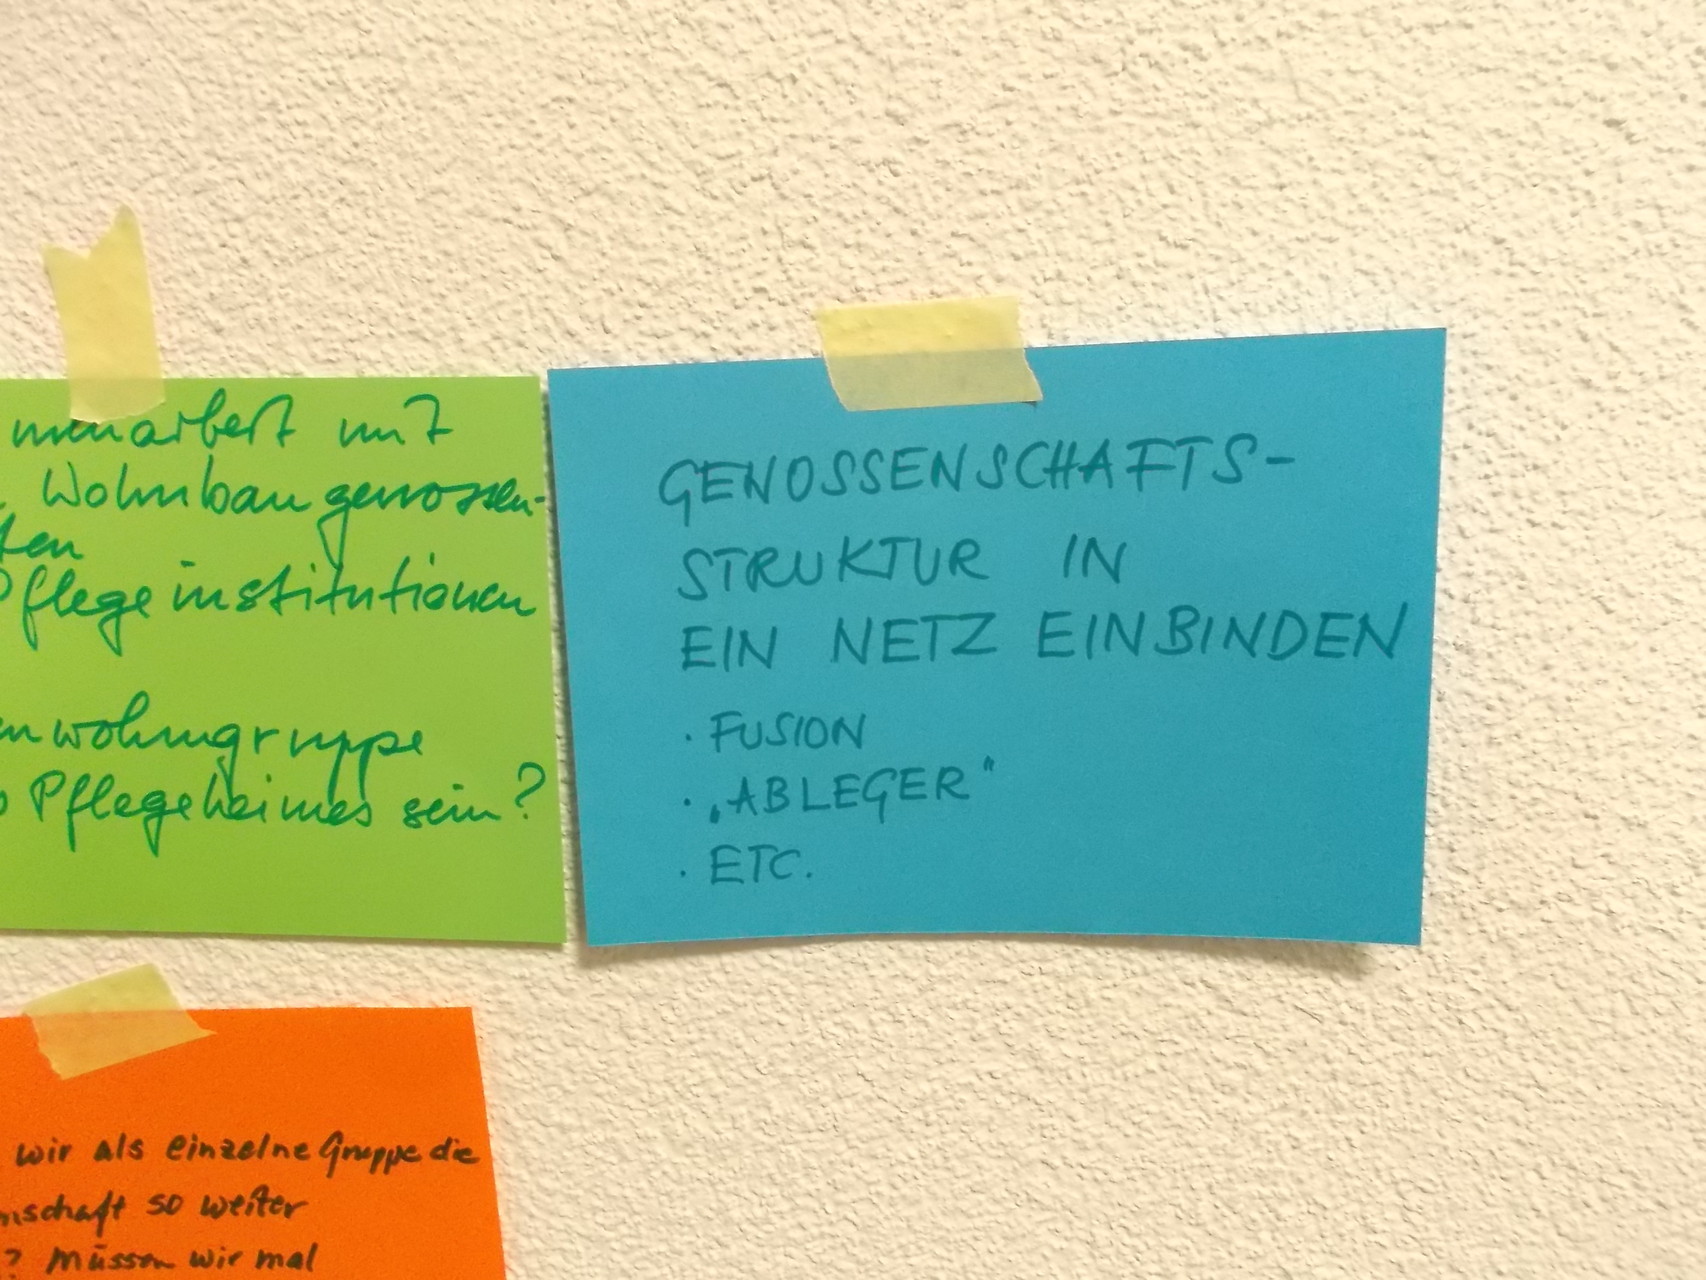 menarbeit mit
Wohnbaugenossen-
ten
Pflegeinstitutionen
nwohngruppe
Pflegeheimes sein?
GENOSSENSCHAFTS-
STRUKTUR IN
EIN NETZ EINBINDEN
· FUSION
· „ABLEGER“
· ETC.
wir als einzelne Gruppe die
nschaft so weiter
? Müssen wir mal